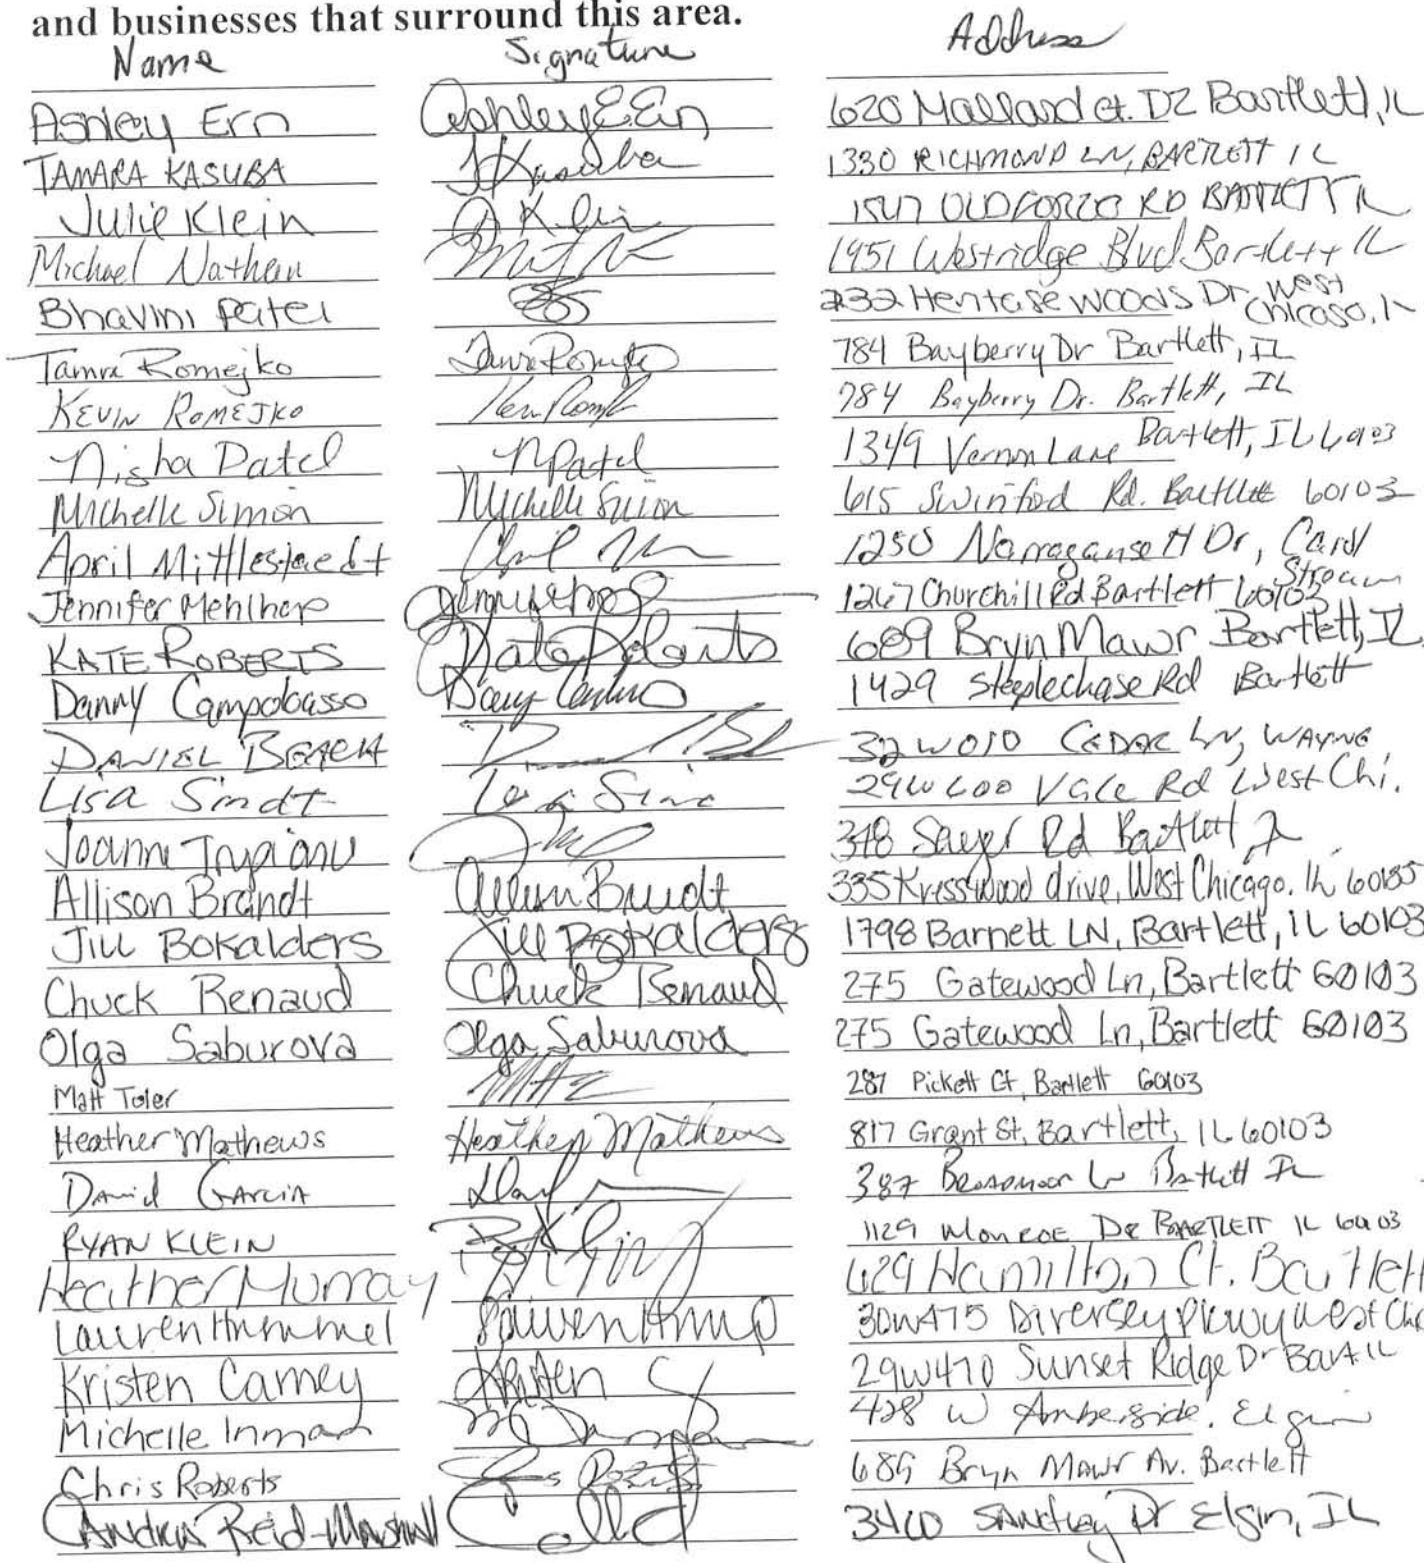 and businesses that surround this area.
Name Signature Address
Ashley Ern Ashley E. Ern 620 Mallard Ct. D2 Bartlett, IL
TAMARA KASUBA TKasuba 1330 RICHMOND LN, BARTLETT IL
Julie Klein J Klein RD BARTLETT IL
Michael Nathan 1951 Westridge Blvd Bartlett IL
Bhavini Patel 232 Heritage Woods Dr, West Chicago, IL
Tamra Romejko Tamra Romejko 784 Bayberry Dr Bartlett, IL
KEVIN ROMEJKO 784 Bayberry Dr. Bartlett, IL
Nisha Patel NPatel 1349 Vernon Lane Bartlett, IL 60103
Michelle Simon Michelle Simon 615 Swinford Rd. Bartlett 60103
April Mittlestaedt 1250 Narragansett Dr, Carol Stream
Jennifer Mehlhop 1267 Churchill Rd Bartlett 60103
KATE ROBERTS Kate Roberts 689 Bryn Mawr Bartlett, IL
Danny Campobasso 1429 Steeplechase Rd Bartlett
DANIEL BEACH 32W010 CEDAR LN, WAYNE
Lisa Sindt 29W600 Vale Rd West Chi.
Joanne 348 Sayer Rd Bartlett
Allison Brandt Allison Brandt 335 Kresswood drive, West Chicago. IL 60185
Jill Bokalders Jill Bokalders 1798 Barnett LN, Bartlett, IL 60103
Chuck Renaud Chuck Renaud 275 Gatewood Ln, Bartlett 60103
Olga Saburova Olga Saburova 275 Gatewood Ln, Bartlett 60103
Matt Toler 287 Pickett Ct, Bartlett 60103
Heather Mathews Heather Mathews 817 Grant St, Bartlett, IL 60103
David GARCIA 387 Bartlett IL
RYAN KLEIN 1129 Monroe DR BARTLETT IL 60103
Heather Murray 629 Hamilton Ct. Bartlett
Lauren Hummel 30W475 Diversey Pkwy West Chi
Kristen Carney Kristen C 29W470 Sunset Ridge Dr Bart IL
Michelle Inman 428 W Amberside. Elgin
Chris Roberts 689 Bryn Mawr Av. Bartlett
Candra Reid-Marshall Dr Elgin, IL